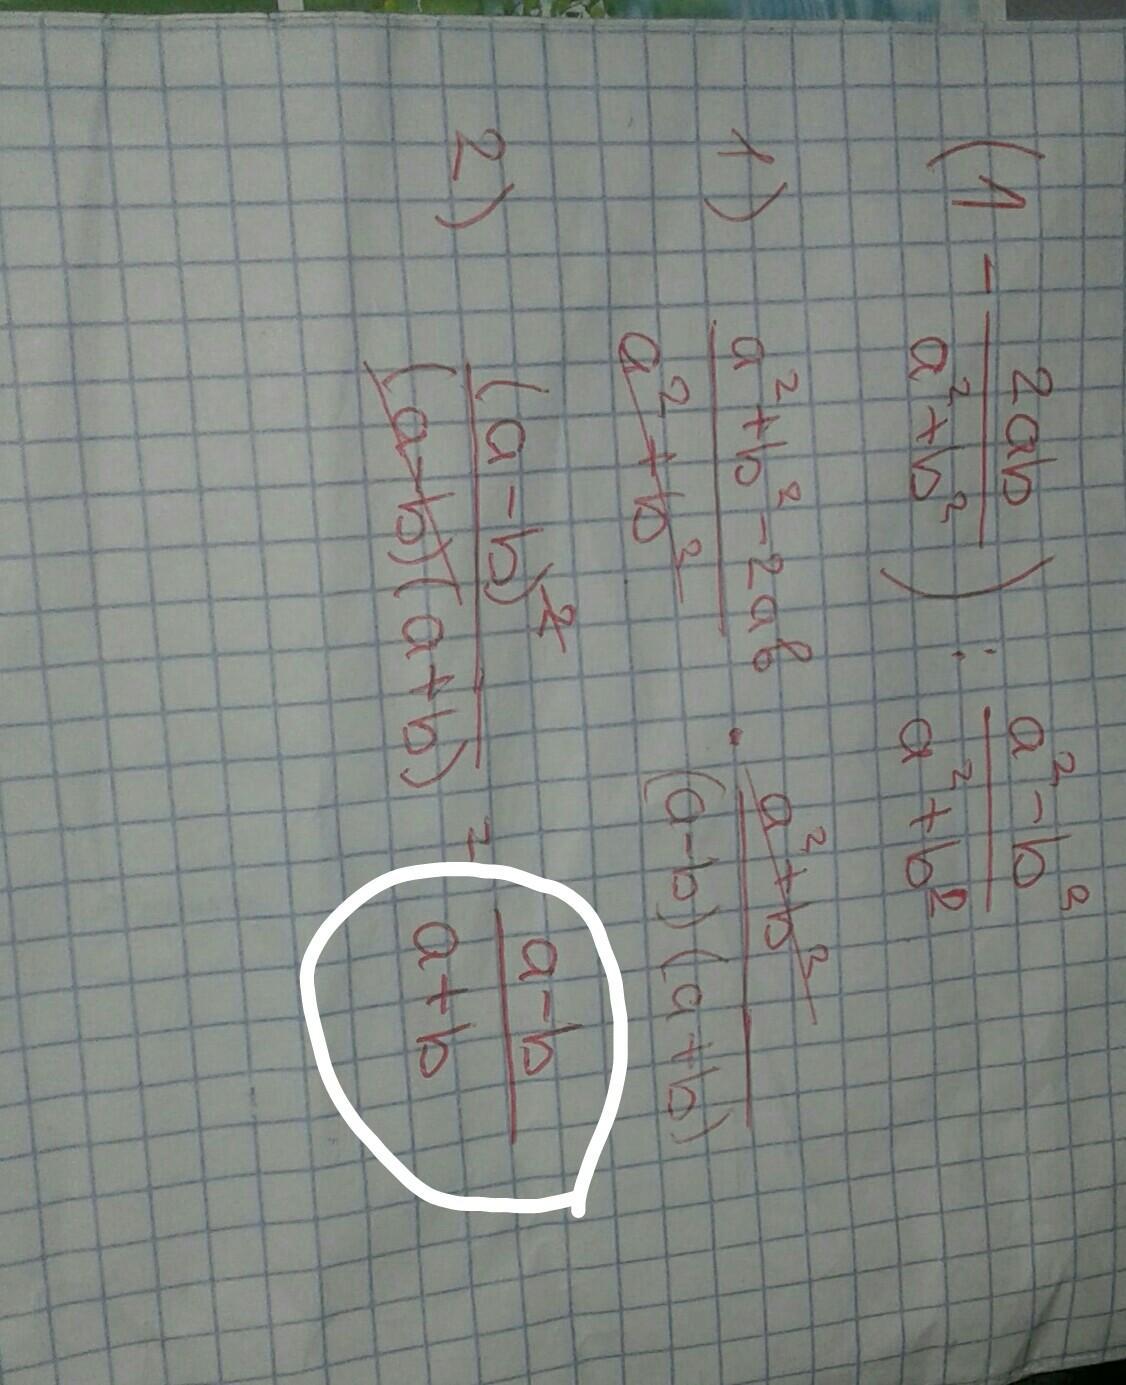 (1 - 2ab/(a²+b²)) : (a²-b²)/(a²+b²)
1) (a²+b²-2ab)/(a²+b²) · (a²+b²)/((a-b)(a+b))
2) (a-b)²/((a-b)(a+b)) = (a-b)/(a+b)